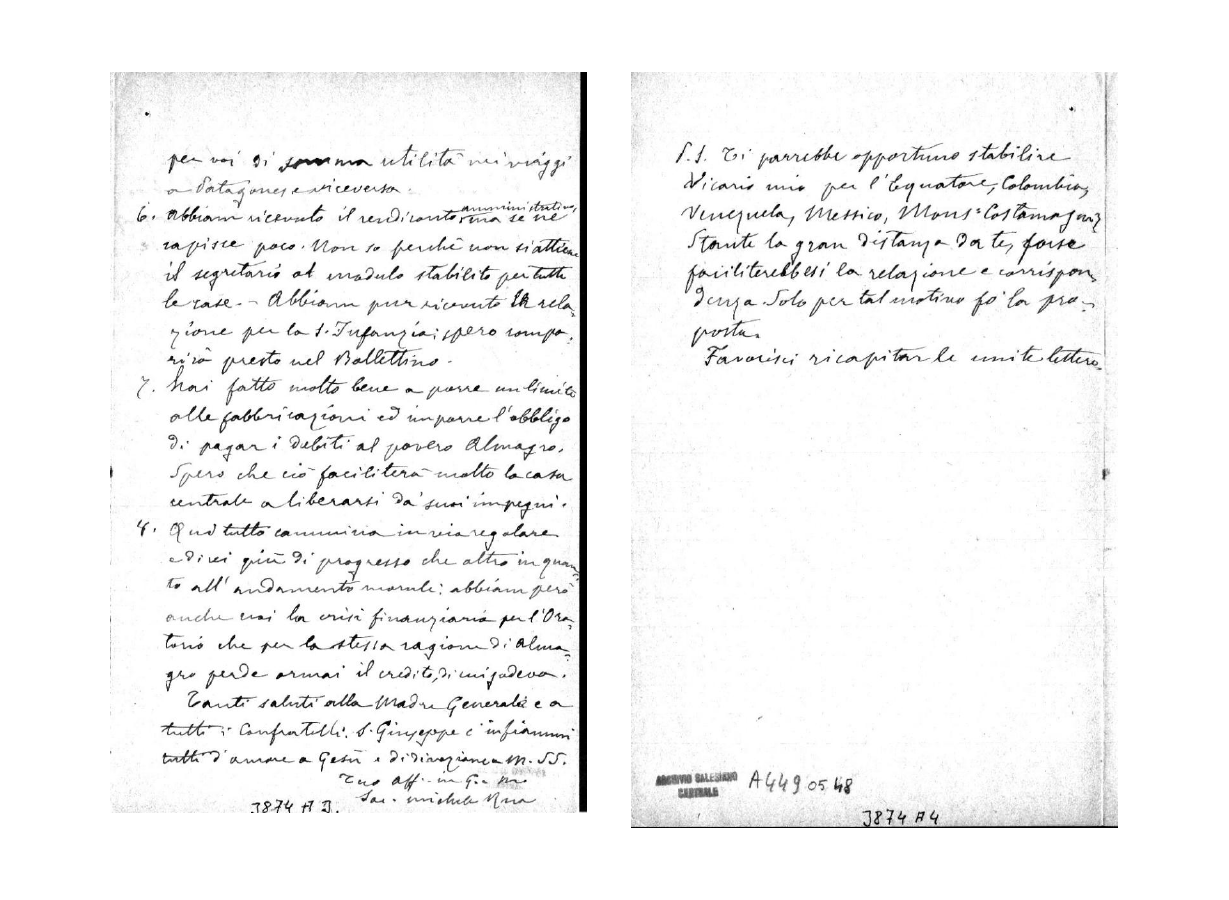 per voi di somma utilità nei viaggi
a Patagones e viceversa.
6. Abbiam ricevuto il rendiconto amministrativo, ma se ne
capisce poco. Non so perché non si attiene
il segretario al modulo stabilito per tutte
le case. - Abbiam pur ricevuto la rela-
zione per la S. Infanzia; spero compa-
rirà presto nel Bollettino.
7. Hai fatto molto bene a porre un limite
alle fabbricazioni ed imporre l'obbligo
di pagar i debiti al povero Almagro.
Spero che ciò faciliterà molto la casa
centrale a liberarsi da' suoi impegni.
8. Qui tutto cammina in via regolare
e direi più di progresso che altro in quan-
to all'andamento morale: abbiam però
anche noi la crisi finanziaria per l'Ora-
torio che per la stessa ragione di Alma-
gro perde ormai il credito, di cui godeva.
Tanti saluti alla Madre Generale e a
tutti i Confratelli. S. Giuseppe c'infiammi
tutti d'amore a Gesù e di divozione a M. SS.
Tuo aff. in G. e M.
Sac. Michele Rua
3874 A 3.
P.S. Ti parrebbe opportuno stabilire
Vicario mio per l'Equatore, Colombia,
Venezuela, Messico, Mons.r Costamagna?
Stante la gran distanza da te, forse
faciliterebbesi la relazione e corrispon-
denza. Solo per tal motivo fo' la pro-
posta.
Favorisci ricapitar le unite lettere.
ARCHIVIO SALESIANO
CENTRALE
A 449 05 48
3874 A 4